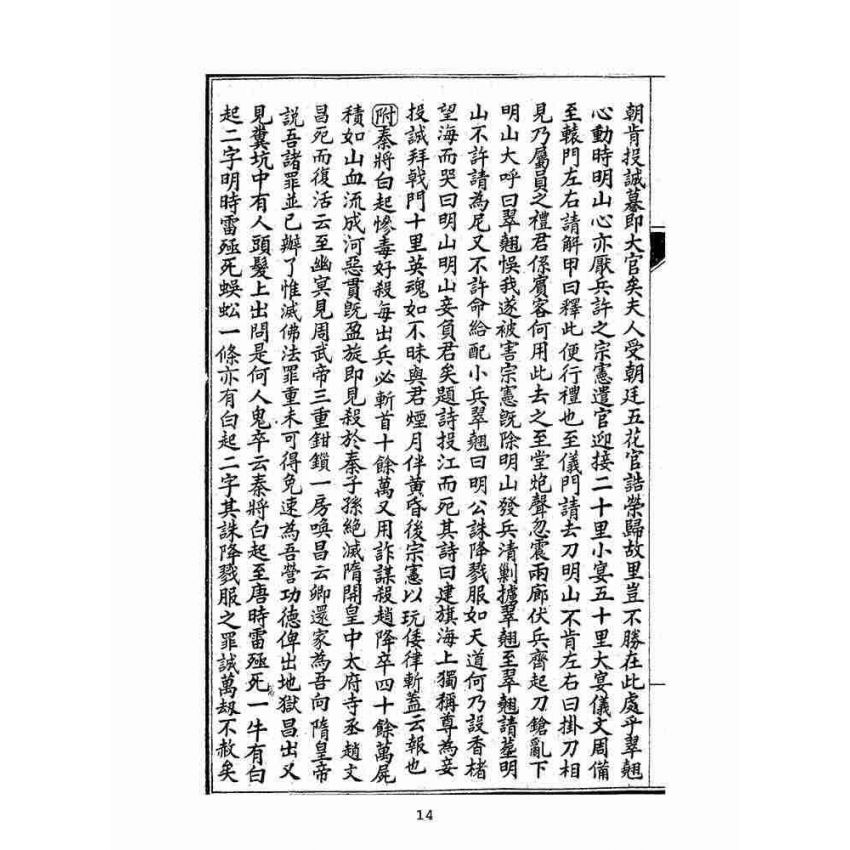 朝肯投誠募即大官矣夫人受朝廷五花官誥榮歸故里豈不勝在此處乎翠翹
心動時明山心亦厭兵許之宗憲遣官迎接二十里小宴五十里大宴儀文周備
至轅門左右請解甲曰釋此便行禮也至儀門請去刀明山不肯左右曰掛刀相
見乃屬員之禮君係賓客何用此去之至堂炮聲忽震兩廊伏兵齊起刀鎗亂下
明山大呼曰翠翹悞我遂被害宗憲旣除明山發兵清剿擄翠翹至翠翹請塟明
山不許請為尼又不許命給配小兵翠翹曰明公誅降戮服如天道何乃設香楮
望海而哭曰明山明山妾負君矣題詩投江而死其詩曰建旗海上獨稱尊為妾
投誠拜戟門十里英魂如不昧與君煙月伴黄昏後宗憲以玩倭律斬蓋云報也
附秦將白起慘毒好殺每出兵必斬首十餘萬又用詐謀殺趙降卒四十餘萬屍
積如山血流成河惡貫旣盈旋即見殺於秦子孫絶滅隋開皇中太府寺丞趙文
昌死而復活云至幽冥見周武帝三重鉗鎖一房喚昌云卿還家為吾向隋皇帝
説吾諸罪並已辦了惟滅佛法罪重未可得免速為吾營功德俾出地獄昌出又
見糞坑中有人頭髮上出問是何人鬼卒云秦將白起至唐時雷殛死一牛有白
起二字明時雷殛死蜈蚣一條亦有白起二字其誅降戮服之罪誠萬刼不赦矣
14